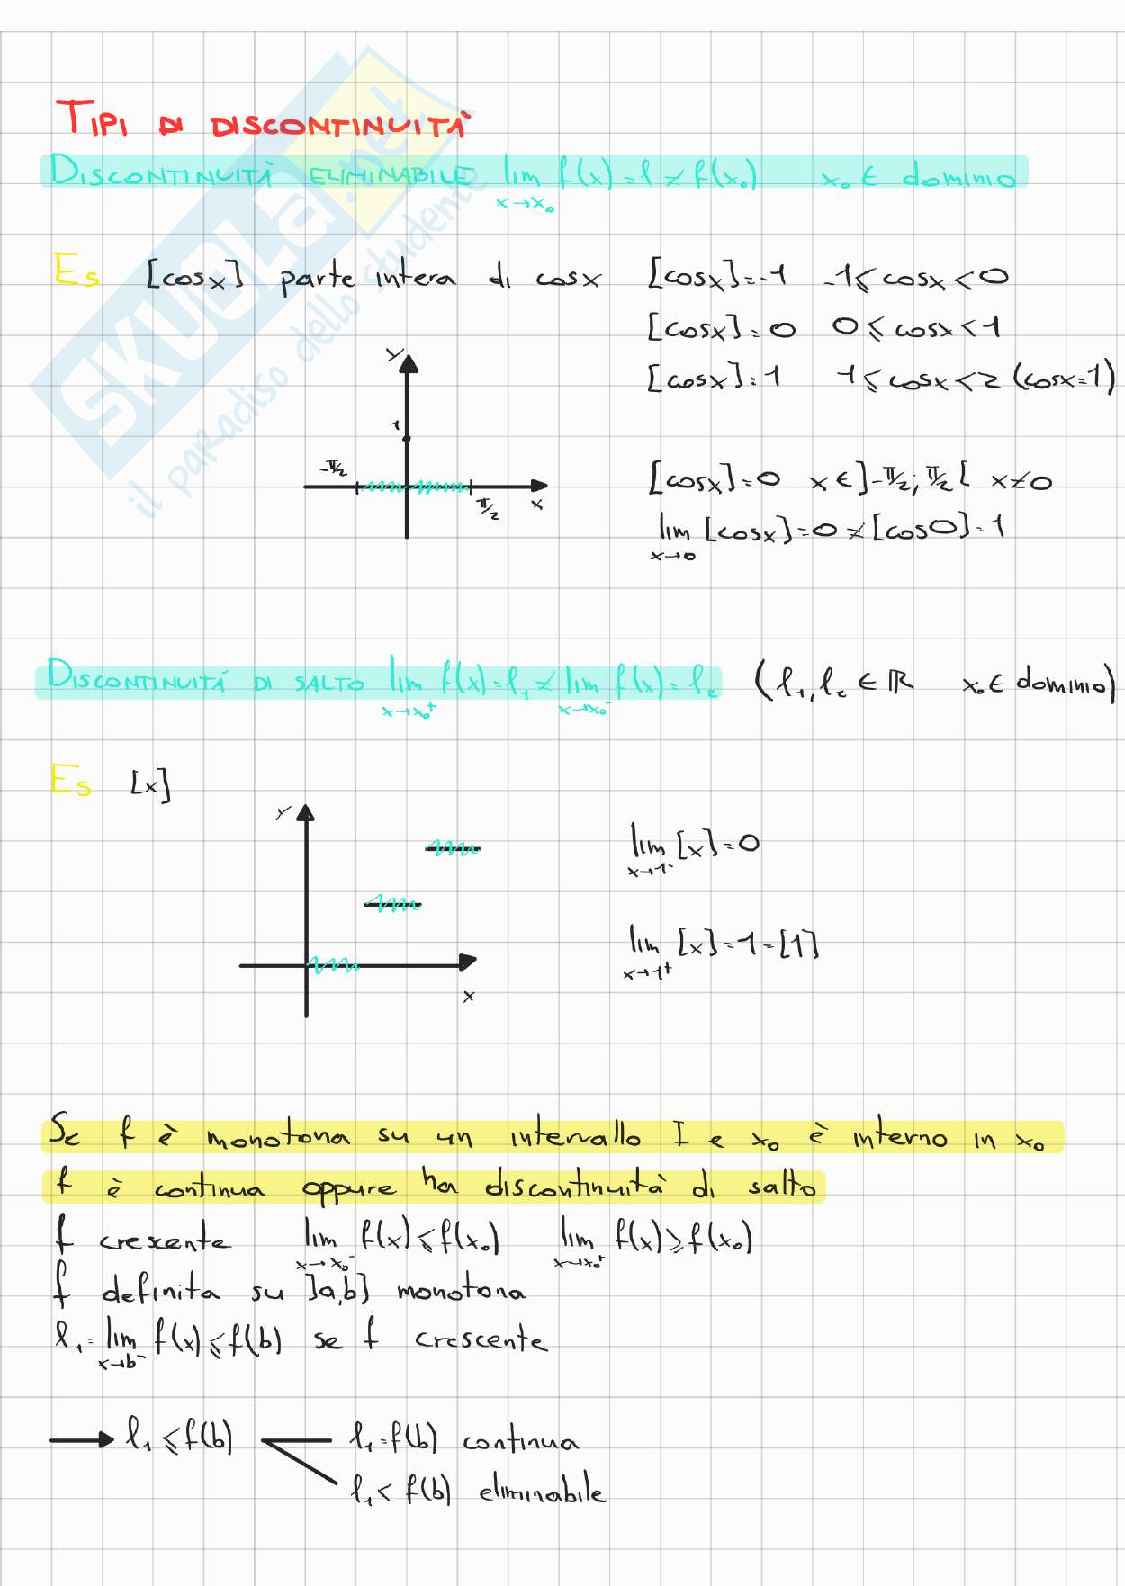 TIPI DI DISCONTINUITÀ
DISCONTINUITÀ ELIMINABILE lim f(x)=l≠f(x₀) x₀∈ dominio
x→x₀
Es [cosx] parte intera di cosx [cosx]=-1 -1≤cosx<0
[cosx]=0 0≤cosx<1
[cosx]=1 1≤cosx<2 (cosx=1)
y
1
-π/2
π/2
x
[cosx]=0 x∈]-π/2;π/2[ x≠0
lim [cosx]=0≠[cos0]=1
x→0
DISCONTINUITÀ DI SALTO lim f(x)=l₁≠lim f(x)=l₂ (l₁,l₂∈ℝ x₀∈ dominio)
x→x₀⁺ x→x₀⁻
Es [x]
y
x
lim [x]=0
x→1⁻
lim [x]=1=[1]
x→1⁺
Se f è monotona su un intervallo I e x₀ è interno in x₀
f è continua oppure ha discontinuità di salto
f crescente lim f(x)≤f(x₀) lim f(x)≥f(x₀)
x→x₀⁻ x→x₀⁺
f definita su ]a,b] monotona
l₁=lim f(x)≤f(b) se f crescente
x→b⁻
→ l₁≤f(b) l₁=f(b) continua
l₁<f(b) eliminabile
SKUOLA.net
il paradiso dello studente